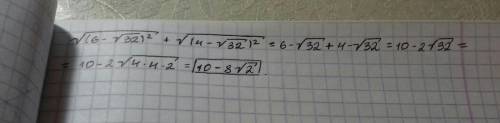 √(6-√32)² + √(4-√32)² = 6-√32 + 4-√32 = 10-2√32 =
= 10-2√4·4·2 = 10-8√2.